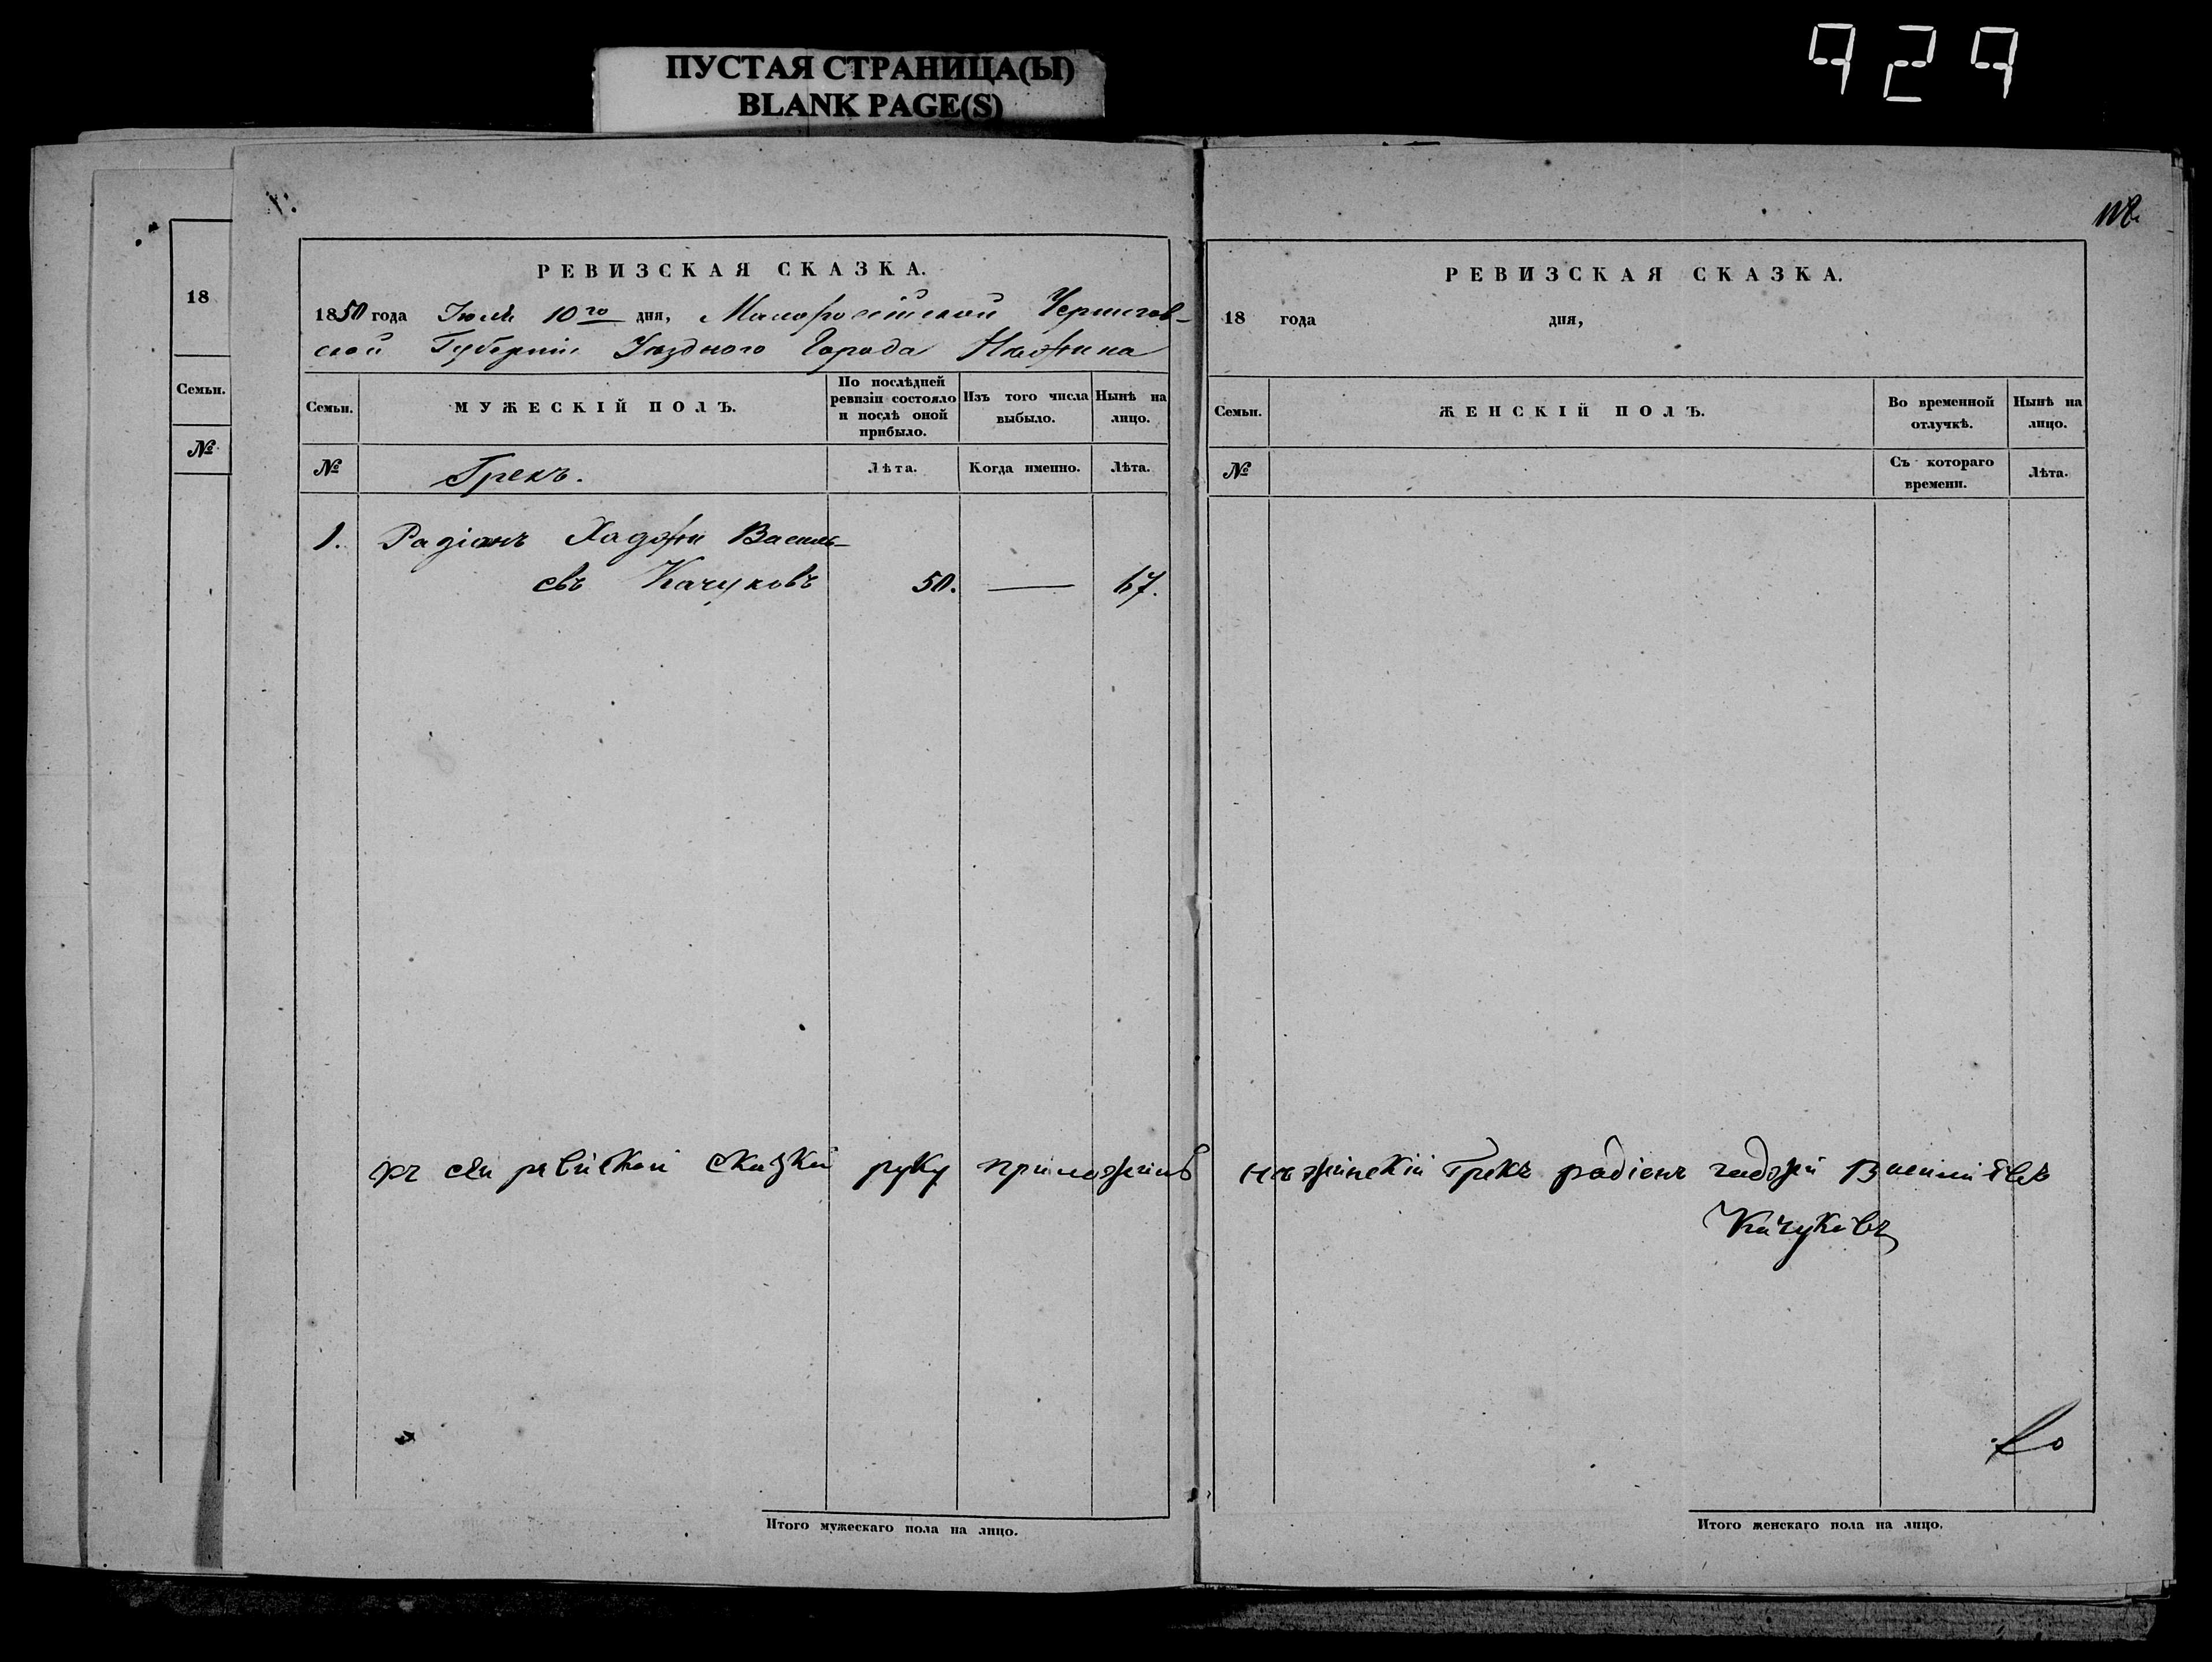 ПУСТАЯ СТРАНИЦА(Ы)
BLANK PAGE(S)
929
18
Семьи.
№
РЕВИЗСКАЯ СКАЗКА.
1850 года Іюля 10го дня, Малороссійской Чернигов-
ской Губерніи Уѣзднаго Города Нѣжина
Семьи.
МУЖЕСКІЙ ПОЛЪ.
По послѣдней ревизіи состояло и послѣ оной прибыло.
Изъ того числа выбыло.
Нынѣ на лицо.
№
Грекъ.
Лѣта.
Когда именно.
Лѣта.
1. Радіонъ Хаджи Василь-
евъ Качуковъ 50. — 67.
къ сей ревиской сказки руку приложилъ
Итого мужескаго пола на лицо.
118
РЕВИЗСКАЯ СКАЗКА.
18 года дня,
Семьи.
ЖЕНСКІЙ ПОЛЪ.
Во временной отлучкѣ.
Нынѣ на лицо.
№
Съ котораго времени.
Лѣта.
нѣжинскій Грекъ радіонъ хаджи Василіевъ
Качуковъ
Итого женскаго пола на лицо.